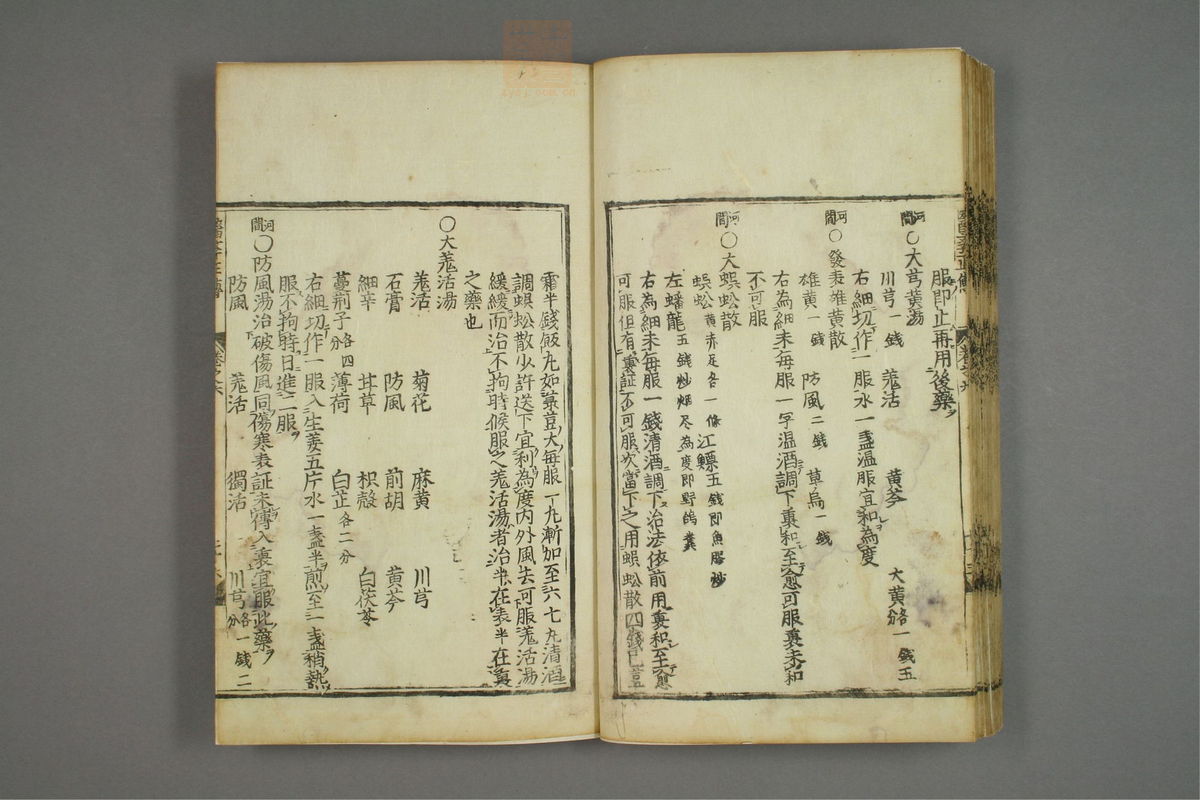 服即止再用後藥
河間○大芎黄湯
川芎一錢 羗活 黄芩 大黄各一錢五分
右細切作一服水一盞温服宜和為度
河間○發表雄黄散
雄黄一錢 防風二錢 草烏一錢
右為細末每服一字温酒調下裏和至愈可服裏未和
不可服
河間○大蜈蚣散
蜈蚣黄赤足各一條 江鰾五錢即魚膠炒
左蟠龍五錢炒烟尽為度即野鴿糞
右為細末每服一錢清酒調下治法依前用裏和至愈
可服但有裏証不可服次當下之用蜈蚣散四錢巴荳
霜半錢飯九如菉荳大每服一九漸加至六七九清酒
調蜈蚣散少許送下宜利為度内外風去可服羗活湯
緩緩而治不拘時候服之羗活湯者治半在表半在裏
之藥也
○大羗活湯
羗活 菊花 麻黄 川芎
石膏 防風 前胡 黄芩
細辛 甘草 枳殻 白茯苓
蔓荆子各四分 薄荷 白芷各二分
右細切作一服入生姜五片水一盞半煎至一盞稍熱
服不拘時日進二服
河間○防風湯治破傷風同傷寒表証未傳入裏宜服此藥
防風 羗活 獨活 川芎各一錢二分